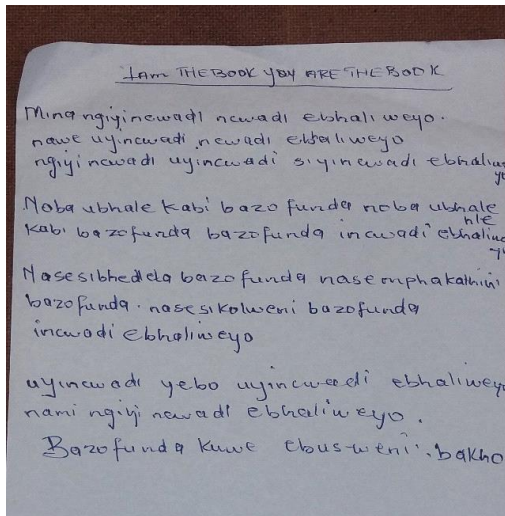 I am THE BOOK YOU ARE THE BOOK
Mina ngiyincwadi ncwadi ebhaliweyo.
nawe uyincwadi ncwadi ebhaliweyo
ngiyincwadi uyincwadi siyincwadi ebhaliwe
yo
Noba ubhale kabi bazofunda noba ubhale
hle
kabi bazofunda bazofunda incwadi ebhaliwe
Nasesibhedlela bazofunda nasemphakathini
bazofunda. nasesikolweni bazofunda
incwadi ebhaliweyo
uyincwadi yebo uyincwadi ebhaliweyo
nami ngiyincwadi ebhaliweyo.
Bazofunda kuwe ebusweni. bakho